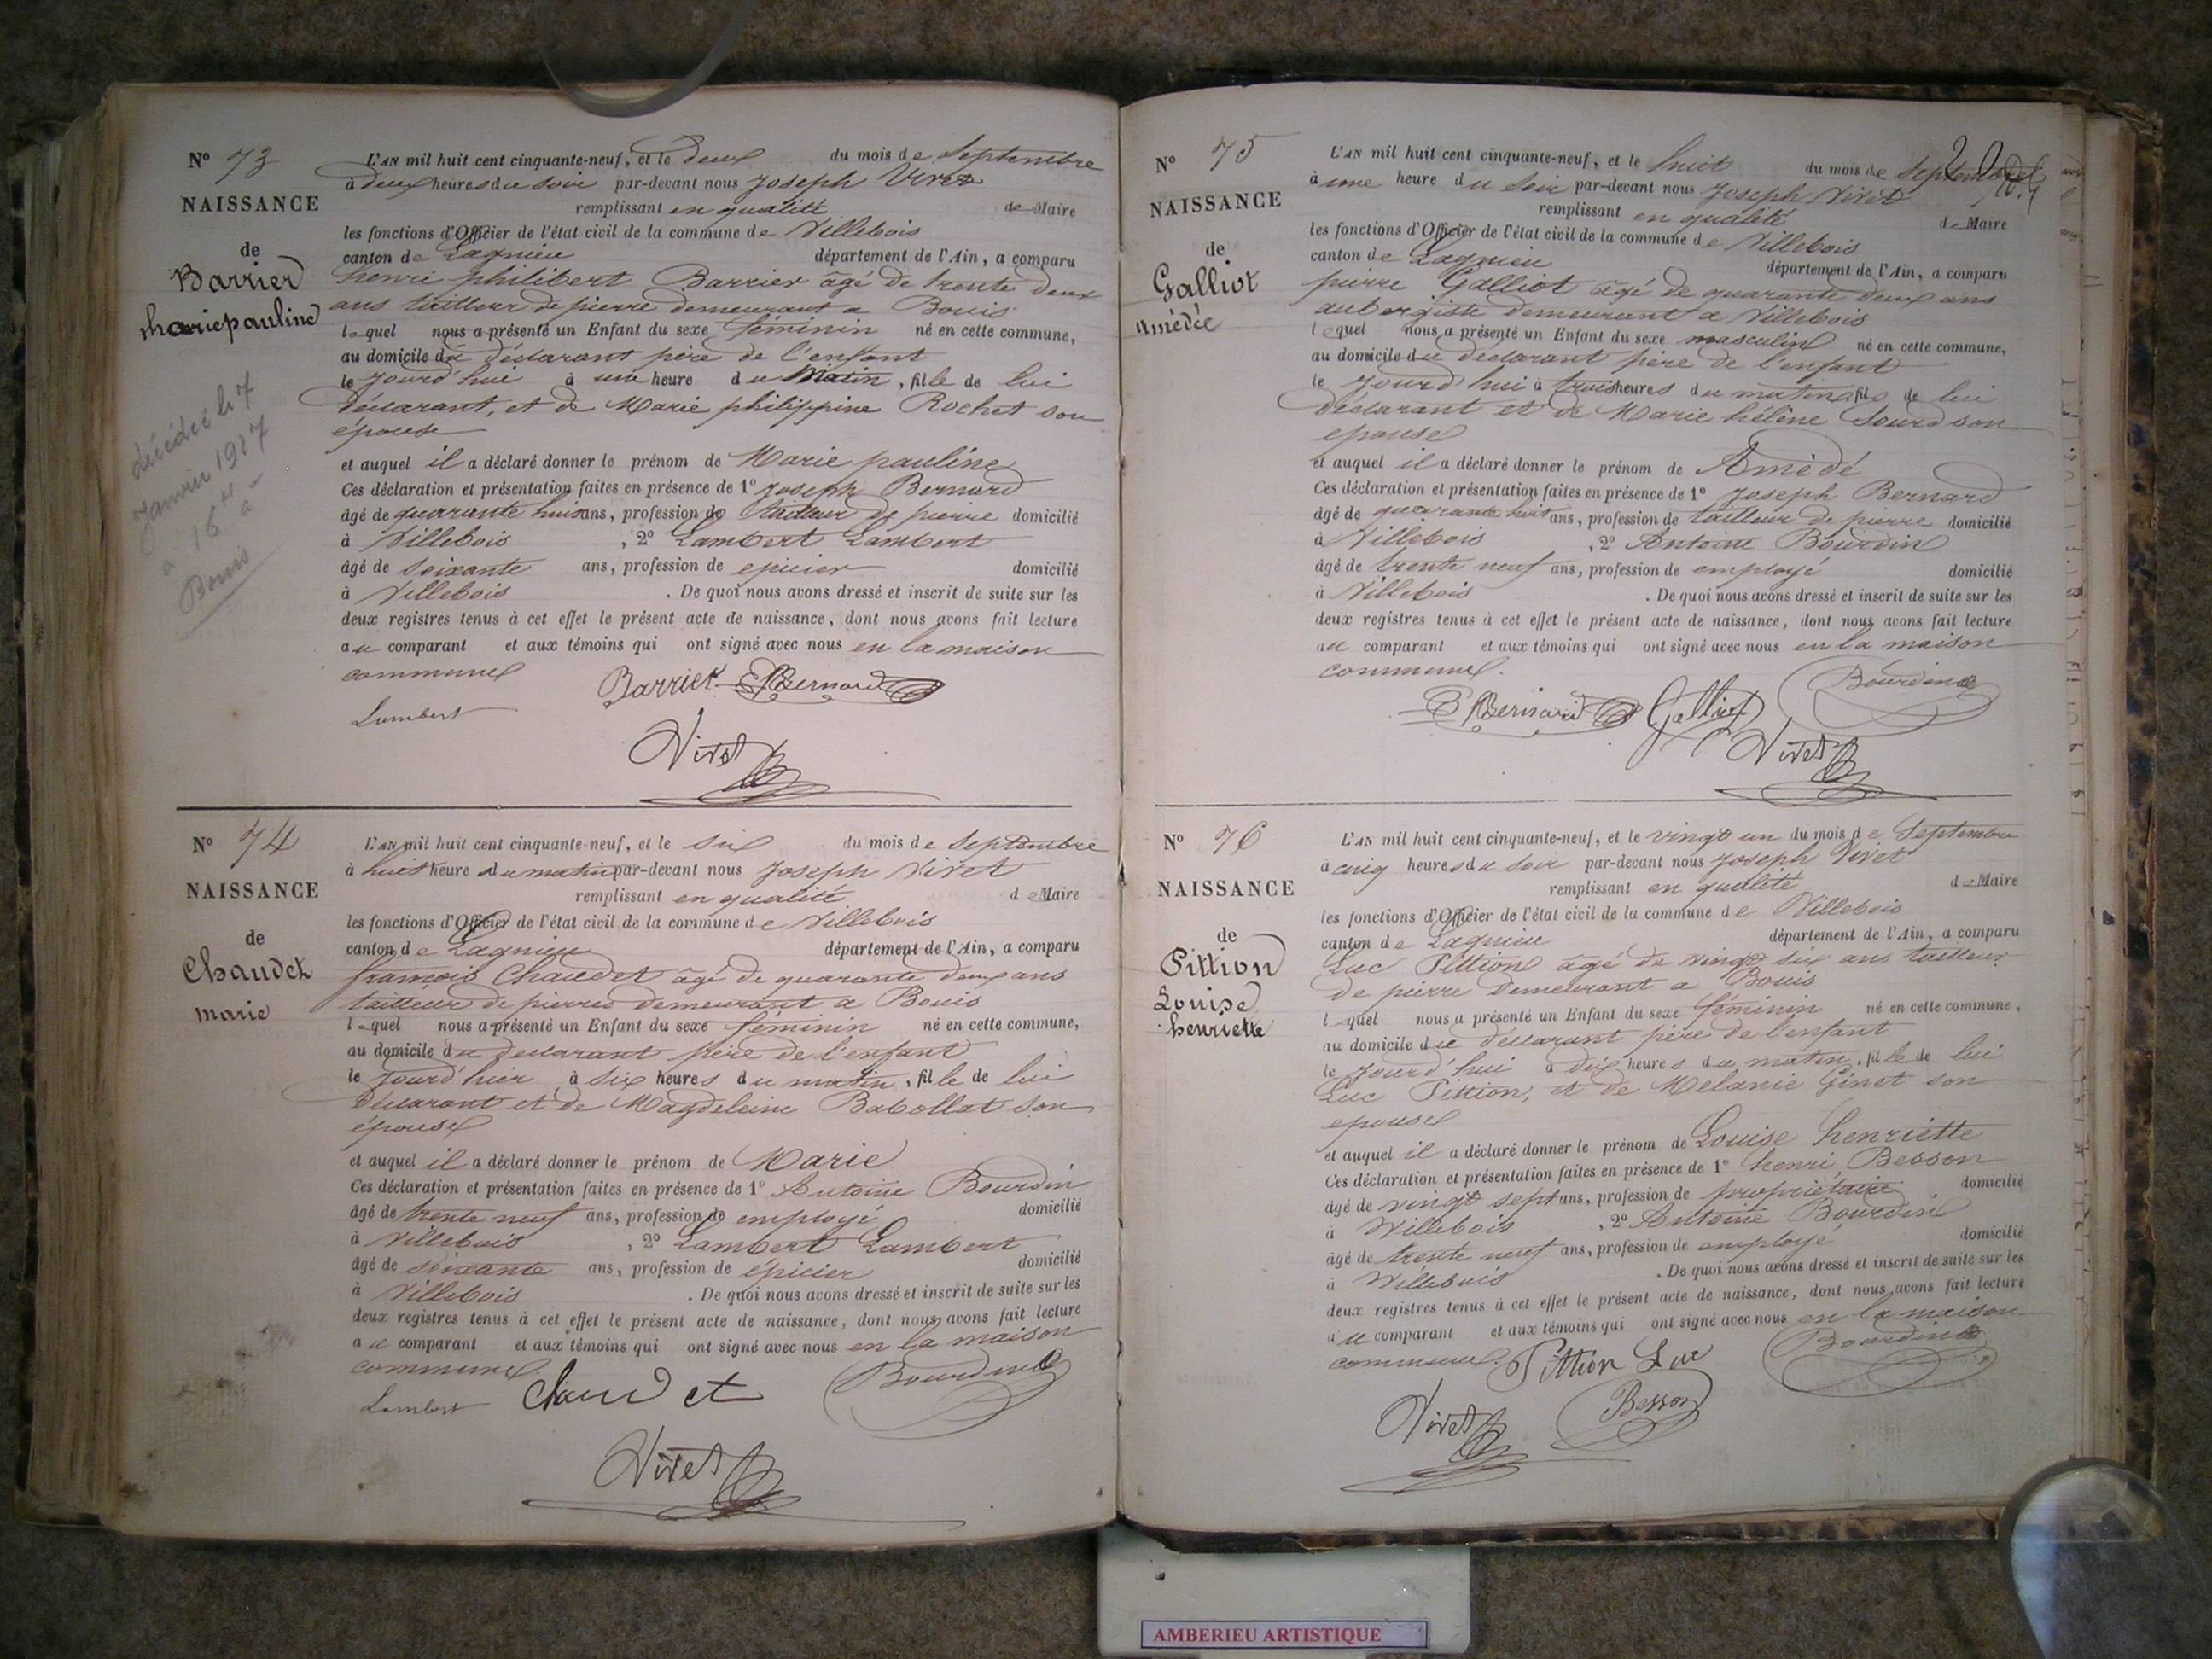 N° 73
NAISSANCE
de
Barrier
Marie pauline
décédée le 7
Janvier 1917
à 16 h
à
Bouis
L'AN mil huit cent cinquante-neuf, et le deux du mois de Septembre
à deux heures du soir par-devant nous Joseph Vivet
remplissant en qualité de Maire
les fonctions d'Officier de l'état civil de la commune de Villebois
canton de Lagnieu département de l'Ain, a comparu
henri philibert Barrier âgé de trente deux
ans tailleur de pierre demeurant a Bouis
lequel nous a présenté un Enfant du sexe féminin né en cette commune,
au domicile du déclarant père de l'enfant
le jourd'hui à une heure du matin, fille de lui
déclarant, et de Marie philippine Rochet son
épouse
et auquel il a déclaré donner le prénom de Marie pauline
Ces déclaration et présentation faites en présence de 1° Joseph Bernard
âgé de quarante huit ans, profession de tailleur de pierre domicilié
à Villebois, 2° Lambert Lambert
âgé de soixante ans, profession de epicier domicilié
à Villebois. De quoi nous avons dressé et inscrit de suite sur les
deux registres tenus à cet effet le présent acte de naissance, dont nous avons fait lecture
au comparant et aux témoins qui ont signé avec nous en la maison
commune
Barrier Bernard
Lambert
Vivet
N° 74
NAISSANCE
de
Chaudet
marie
L'AN mil huit cent cinquante-neuf, et le six du mois de Septembre
à huit heure du matin par-devant nous Joseph Vivet
remplissant en qualité de Maire
les fonctions d'Officier de l'état civil de la commune de Villebois
canton de Lagnieu département de l'Ain, a comparu
françois Chaudet âgé de quarante deux ans
tailleur de pierres demeurant a Bouis
lequel nous a présenté un Enfant du sexe féminin né en cette commune,
au domicile du declarant père de l'enfant
le jourd'hier à six heures du matin, fille de lui
déclarant et de Magdeleine Babollat son
épouse
et auquel il a déclaré donner le prénom de Marie
Ces déclaration et présentation faites en présence de 1° Antoine Bourdin
âgé de trente neuf ans, profession de employé domicilié
à Villebois, 2° Lambert Lambert
âgé de soixante ans, profession de épicier domicilié
à Villebois. De quoi nous avons dressé et inscrit de suite sur les
deux registres tenus à cet effet le présent acte de naissance, dont nous avons fait lecture
au comparant et aux témoins qui ont signé avec nous en la maison
commune.
Lambert Chaudet Bourdin
Vivet
N° 75
NAISSANCE
de
Galliot
Amédée
20
L'AN mil huit cent cinquante-neuf, et le huit du mois de Septembre
à une heure du soir par-devant nous Joseph Vivet
remplissant en qualité de Maire
les fonctions d'Officier de l'état civil de la commune de Villebois
canton de Lagnieu département de l'Ain, a comparu
pierre Galliot âgé de quarante deux ans
aubergiste demeurant a Villebois
lequel nous a présenté un Enfant du sexe masculin né en cette commune,
au domicile du declarant père de l'enfant
le jourd'hui à trois heures du matin, fils de lui
déclarant et de Marie hélène Sourd son
epouse
et auquel il a déclaré donner le prénom de Amédé
Ces déclaration et présentation faites en présence de 1° Joseph Bernard
âgé de quarante huit ans, profession de tailleur de pierre domicilié
à Villebois, 2° Antoine Bourdin
âgé de trente neuf ans, profession de employé domicilié
à Villebois. De quoi nous avons dressé et inscrit de suite sur les
deux registres tenus à cet effet le présent acte de naissance, dont nous avons fait lecture
au comparant et aux témoins qui ont signé avec nous en la maison
commune.
Bernard Galliot Bourdin
Vivet
N° 76
NAISSANCE
de
Pittion
Louise
henriette
L'AN mil huit cent cinquante-neuf, et le vingt un du mois de Septembre
à cinq heures du soir par-devant nous Joseph Vivet
remplissant en qualité de Maire
les fonctions d'Officier de l'état civil de la commune de Villebois
canton de Lagnieu département de l'Ain, a comparu
Luc Pittion âgé de vingt six ans tailleur
de pierre demeurant a Bouis
lequel nous a présenté un Enfant du sexe féminin né en cette commune,
au domicile du déclarant père de l'enfant
le jourd'hui à dix heures du matin, fille de lui
Luc Pittion, et de Melanie Ginet son
epouse
et auquel il a déclaré donner le prénom de Louise henriette
Ces déclaration et présentation faites en présence de 1° henri Besson
âgé de vingt sept ans, profession de propriétaire domicilié
à Villebois, 2° Antoine Bourdin
âgé de trente neuf ans, profession de employé domicilié
à Villebois. De quoi nous avons dressé et inscrit de suite sur les
deux registres tenus à cet effet le présent acte de naissance, dont nous avons fait lecture
au comparant et aux témoins qui ont signé avec nous en la maison
commune.
Pittion Luc Bourdin
Vivet Besson
AMBERIEU ARTISTIQUE